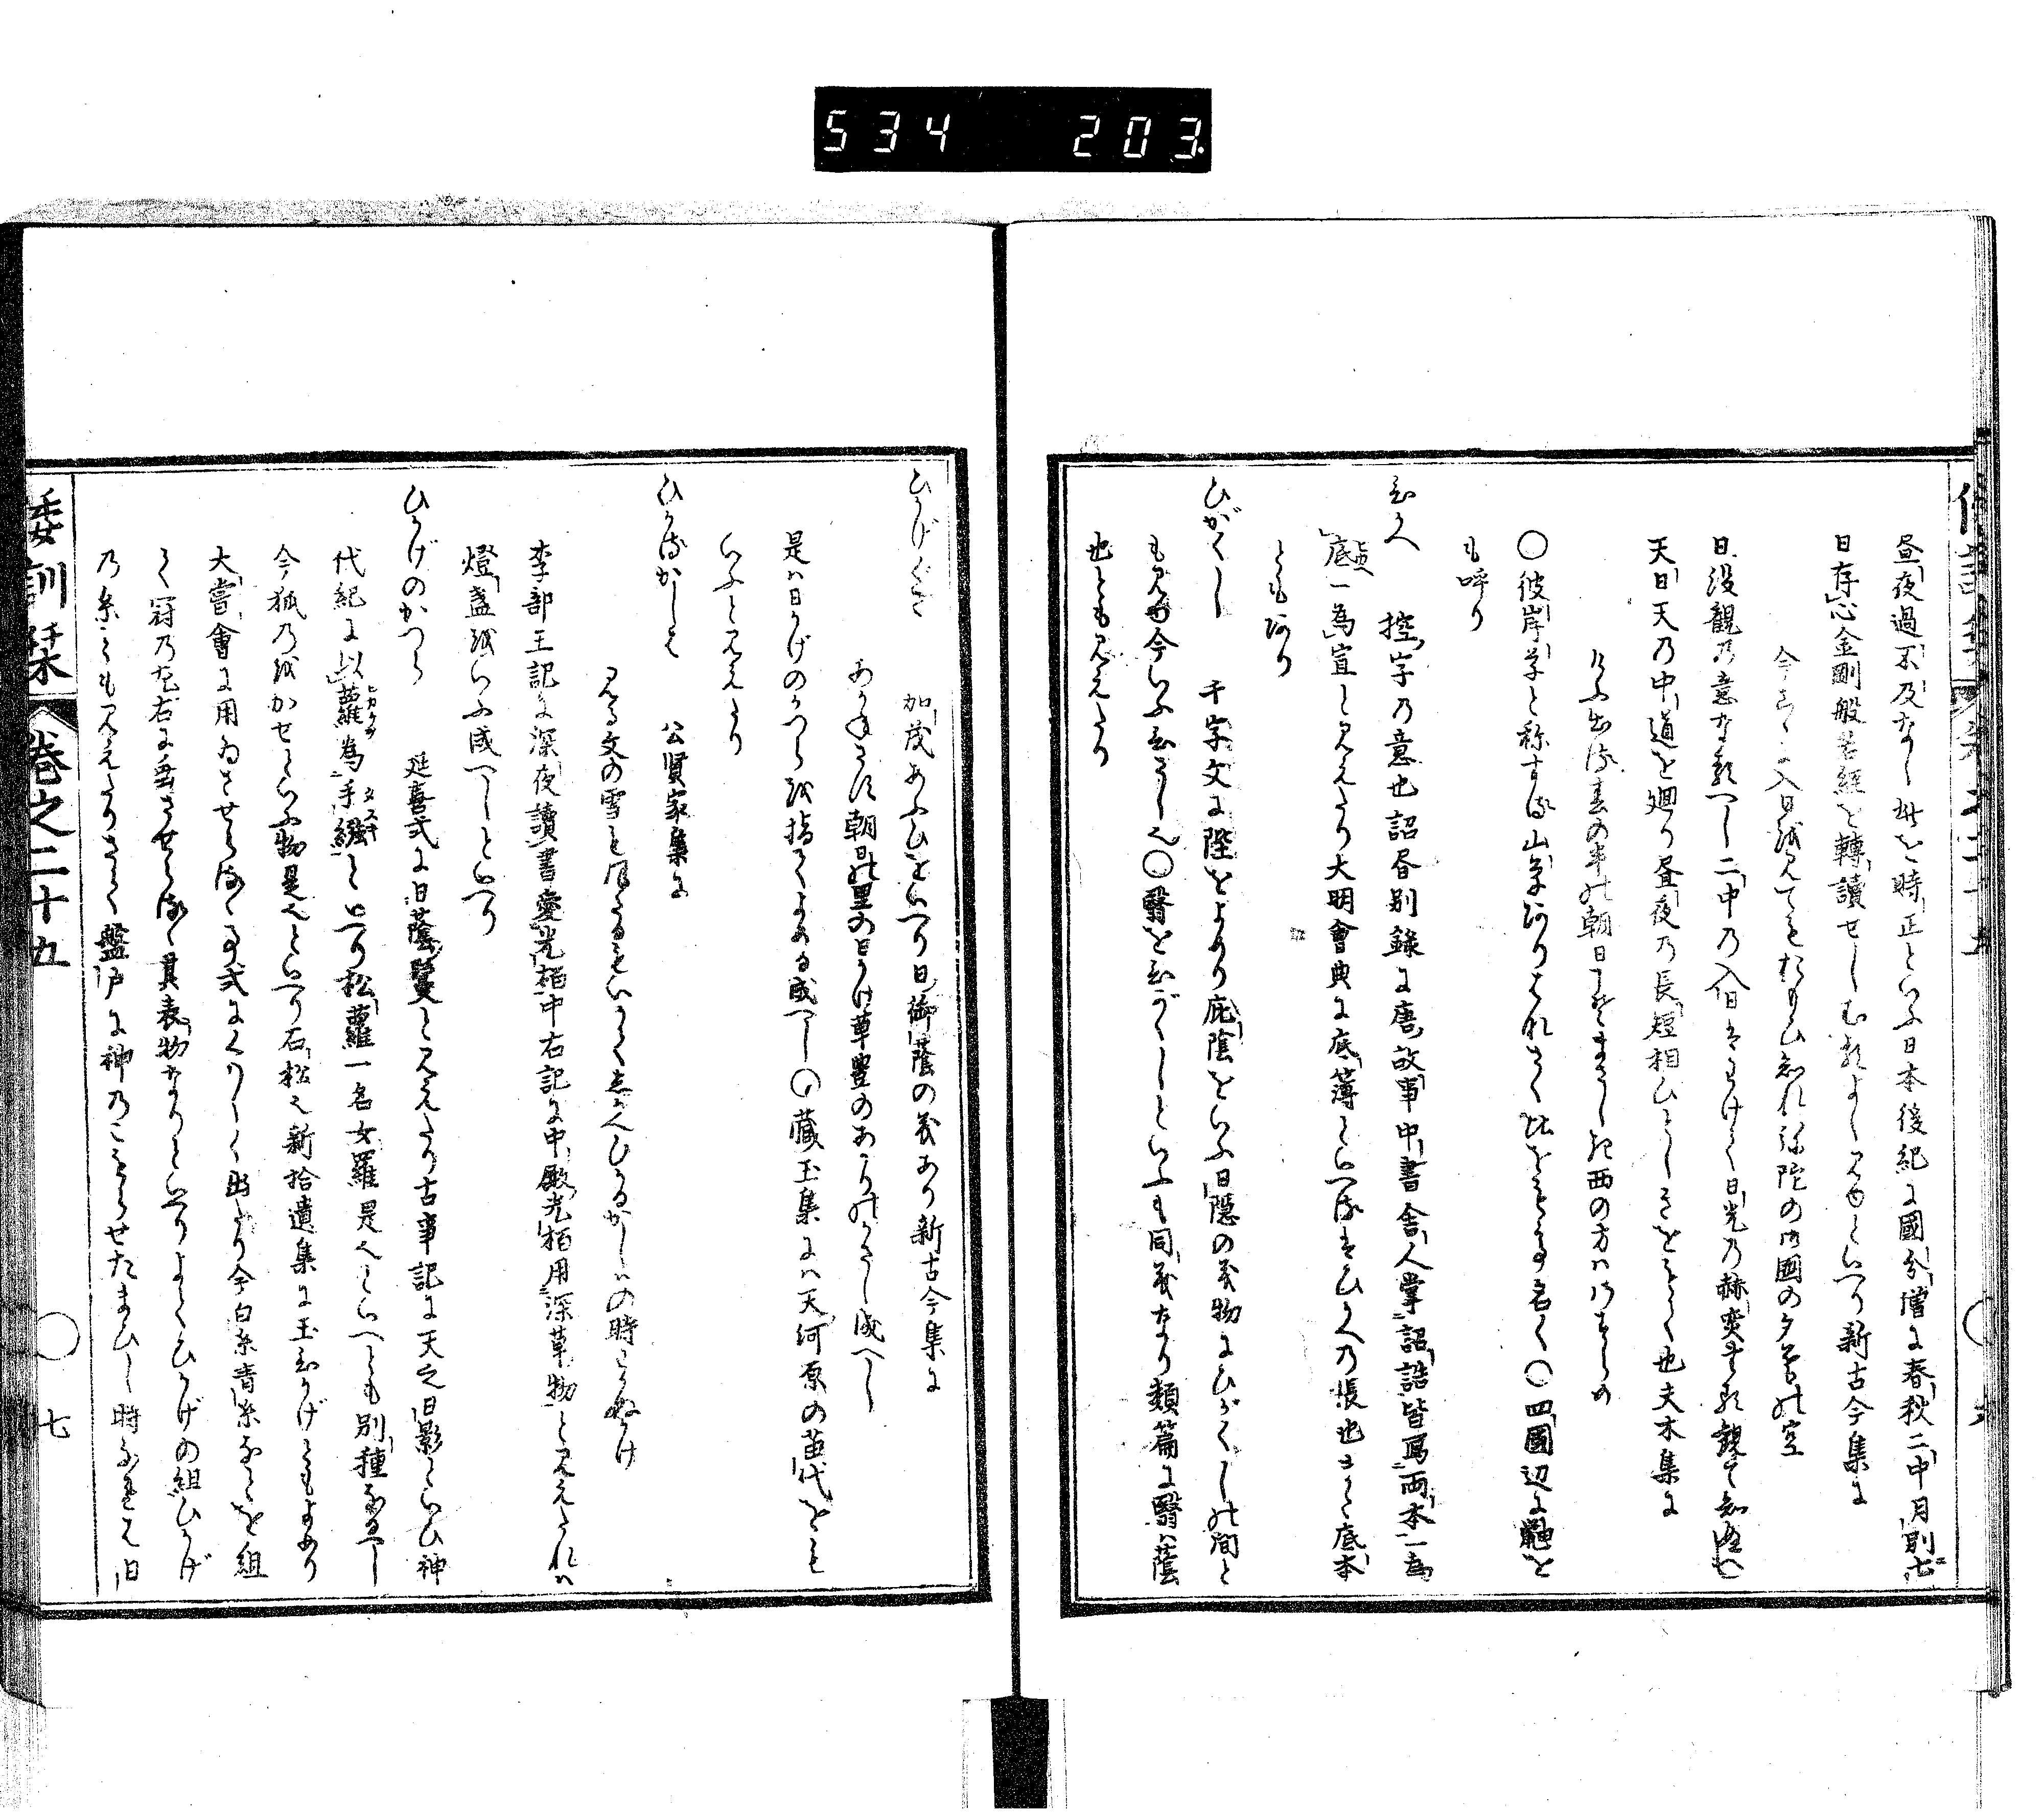 534 203
昼夜過不及なし此を時正といふ日本後紀に國分僧に春秋二中月別七
日存心金剛般若経を轉讀せしむるよし見ゆといへり新古今集に
今こゝに入日を見てもおもひしれ弥陀の御國の夕暮の空
日没観の意なるへし二中の入日はことけく日光の赫奕する観て知へし
天日天の中道を廻り昼夜の長短相ひとしきをとく也夫木集に
けふ出る春の半の朝日こそまさしき西の方はさすらめ
○彼岸草と称する山草ありされさく比をもて名く○四國辺に龜を
も呼り
ひかへ 控字の意也詔昏別録に唐故事中書舎人掌詔誥皆寫両本一為
底一為宣と見えたり大明會典に底簿といへるはひかへの帳也よて底本
ともあり
ひがくし 千字文に陛をよめり庇陰をいふ日隠の義物にひがくしの間と
も見ゆ今いふひさし也○翳をひがくしといふも同義なり類篇に翳ハ蔭
也とも見えたり
ひかげぐさ 加茂あふひをいへり日御蔭の義あり新古今集に
あかねさす朝日の里の日かけ草豊のあかりのかさし成へし
是ハ日かげのかつらを指てよめる成へし○蔵玉集にハ天河原の苗代をも
いふと見えたり
ひかるかしは 公賢家集に
見る文の雪と月とをいかてしらんひかるかしハの時しらぬかけ
李部王記に深夜讀書愛光柏中右記に中殿光柏用深草物と見えたれハ
燈盞をいふ成へしといへり
ひかげのかつら 延喜式に日蔭鬘と見えたり古事記に天之日影といひ神
代紀に以蘿ヒカゲ為手繦タスキといへり松蘿一名女羅是也といへとも別種なるへし
今狐のをかせといふ物是也といへり石松也新拾遺集に玉ひかげともよめり
大嘗會に用ゐさせらるゝ事式にくはしく出たり今白糸青糸なとを組
て冠の左右に垂させらるゝ其表物なりといへりよてひかげの組ひかげ
の糸とも見えたりさて盤戸に神のこもらせたまひし時なれは日
倭訓栞 巻之二十五 ○ 七